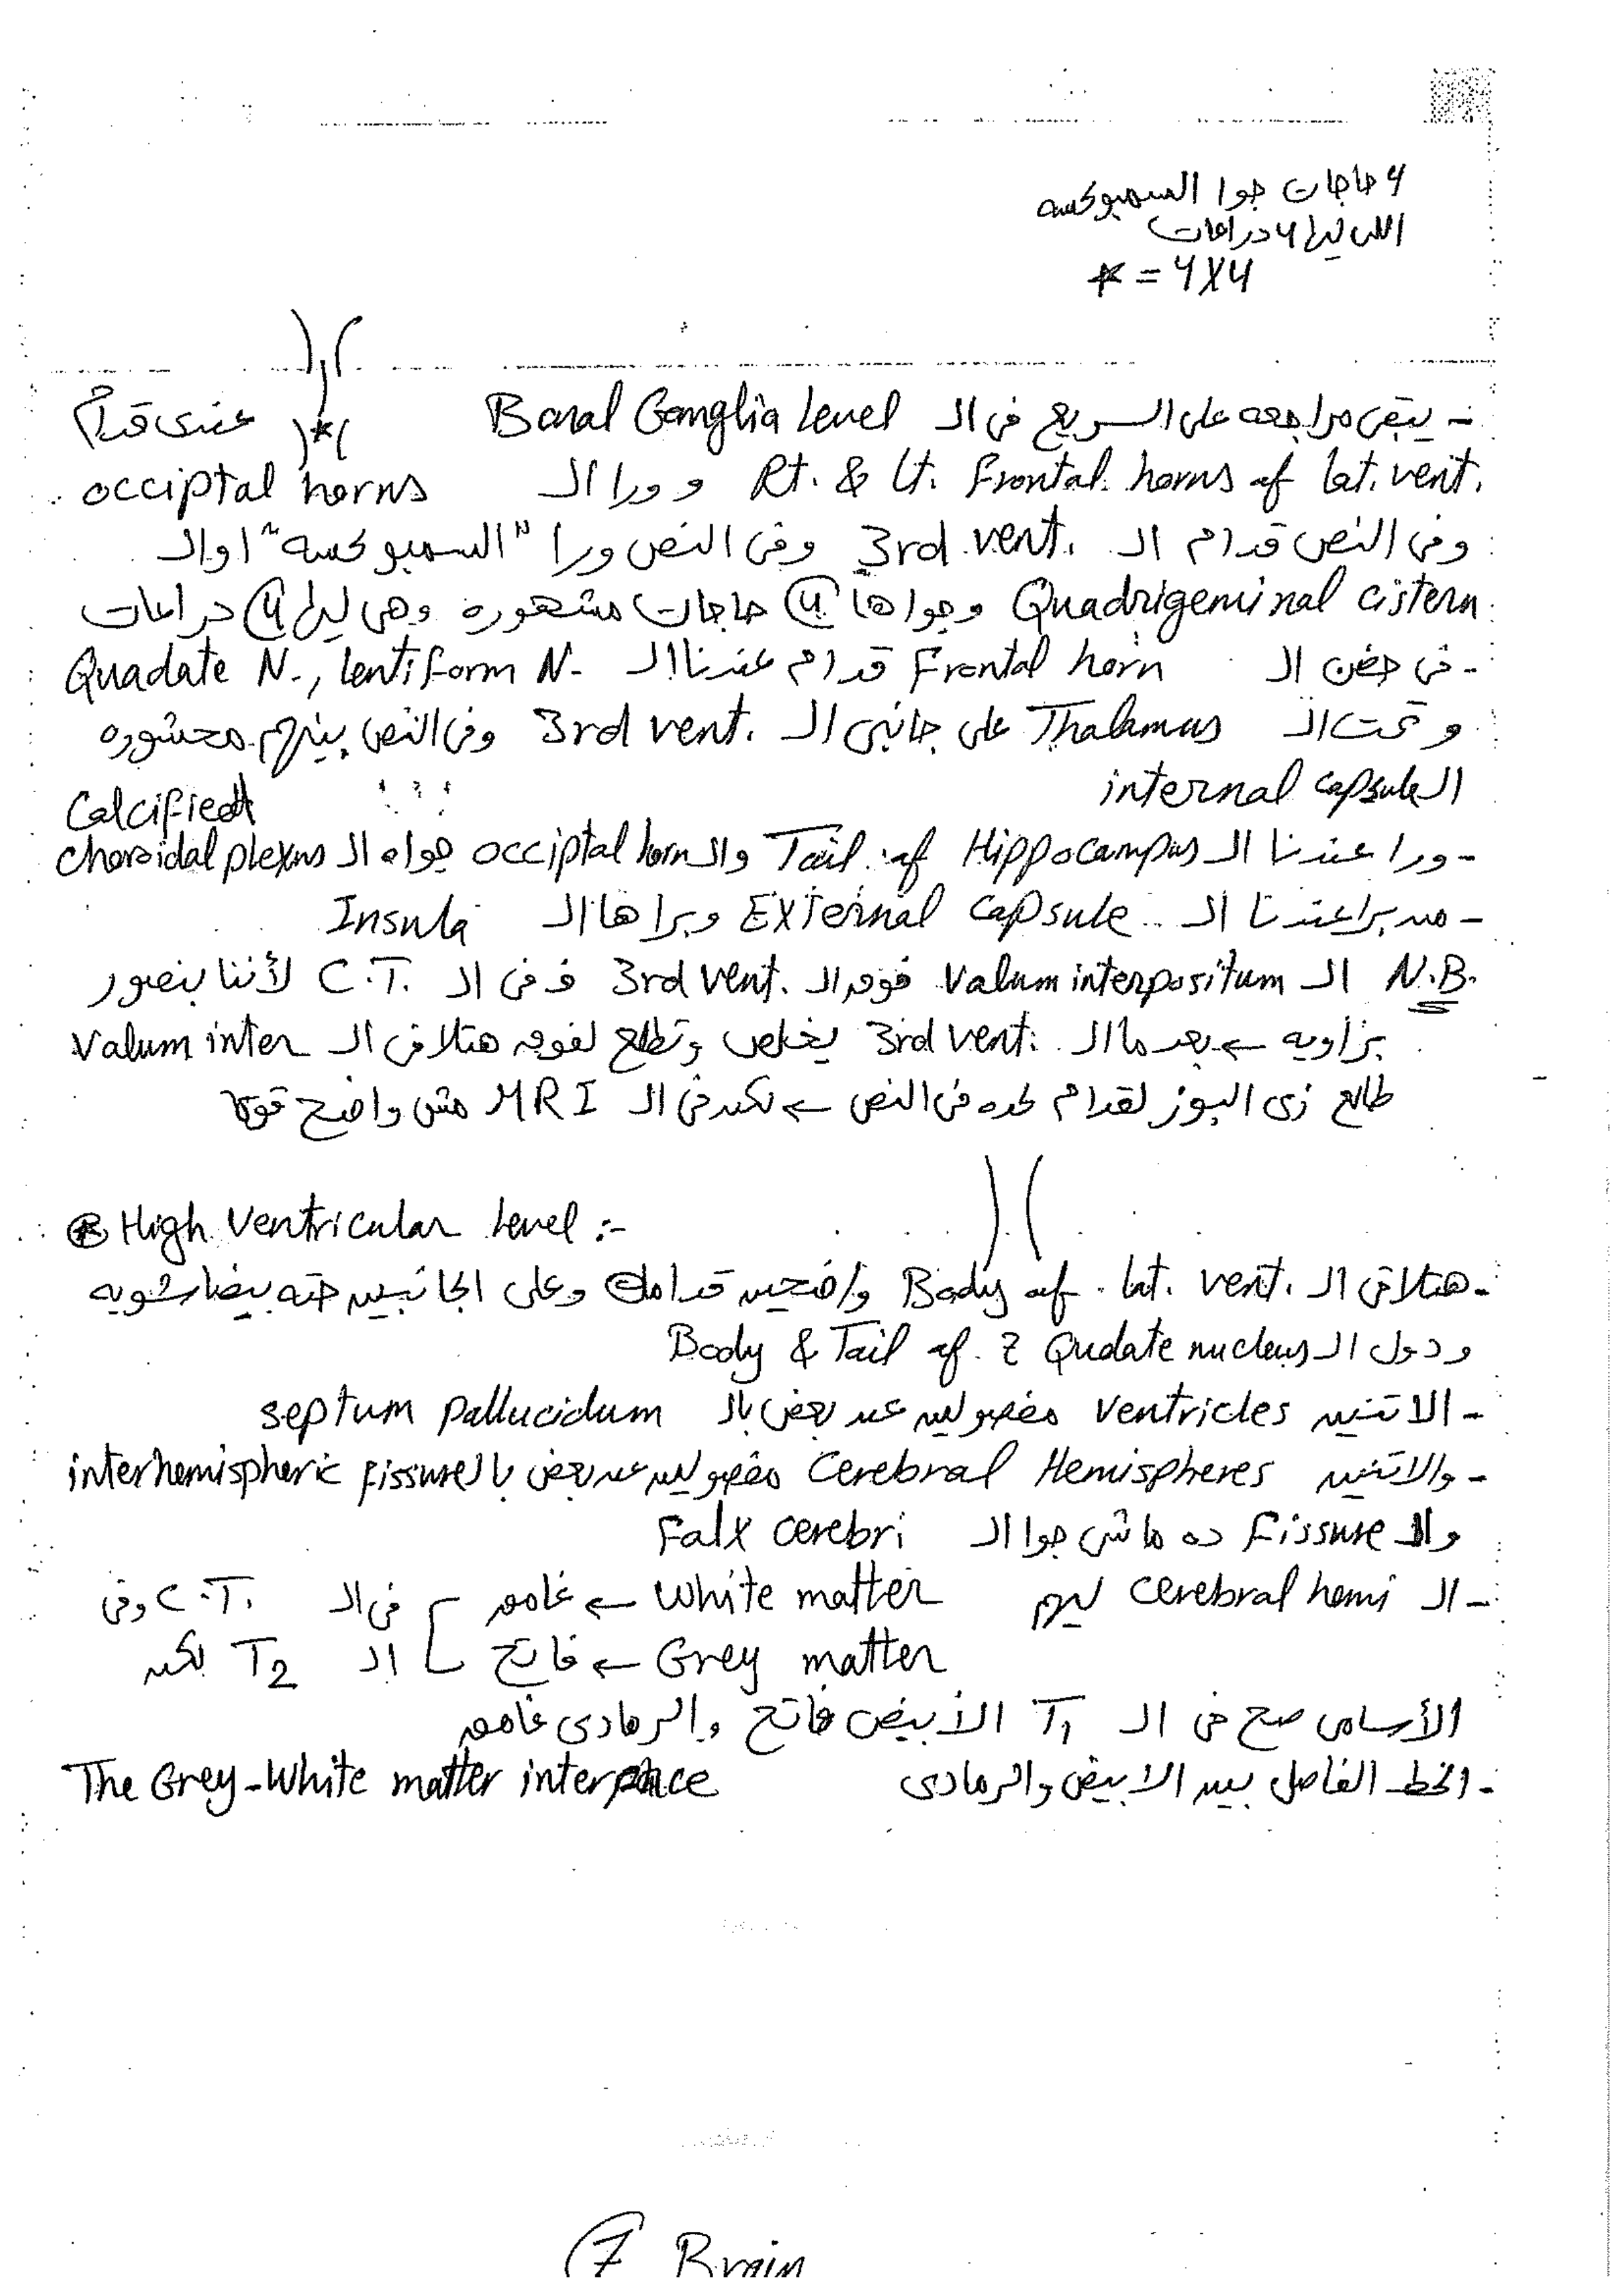 4 حاجات جوا السمبوكسه
اللى ليها 4 دراعات
* = 4X4
- يبقى مراجعه على السريع فى الـ Basal Ganglia Level عندى قدام
Rt. & Lt. Frontal horns of lat. vent. و ورا الـ occiptal horns
وفى النص قدام الـ 3rd vent. وفى النص ورا "السمبوكسه" او الـ
Quadrigeminal cistern وجواها 4 حاجات مشهوره وهى ليها 4 دراعات
- فى حضن الـ Frontal horn قدام عندنا الـ Quadate N., lentiform N.
و تحت الـ Thalamus على جانبى الـ 3rd vent. وفى النص بينهم محشوره
الـ internal capsule
- ورا عندنا الـ Tail of Hippocampus والـ occiptal horn جواه الـ Calcified choroidal plexus
- من برا عندنا الـ External capsule وبراها الـ Insula
N.B. الـ Valum interpositum فوق الـ 3rd vent. ففى الـ C.T. لأننا بنصور
بزاويه ← بعد ما الـ 3rd vent. يخلص وتطلع لفوق هتلاقى الـ Valum inter
طالع زى البوز لقدام كده فى النص ← لكن فى الـ MRI مش واضح قوى
⊛ High Ventricular Level :-
- هتلاقى الـ Body of lat. vent. واضحين قدامك وعلى الجانبين حته بيضا شويه
ودول الـ Body & Tail of z Qudate nucleus
- الاتنين ventricles مفصولين عن بعض بالـ septum pallucidum
- والاتنين Cerebral Hemispheres مفصولين عن بعض بالـ interhemispheric fissure
والـ Fissure ده ماشى جوا الـ Falx cerebri
- الـ cerebral hemi ليهم White matter ← غامق فى الـ C.T. وفى
Grey matter ← فاتح الـ T2 لكن
الأساس صح فى الـ T1 الأبيض فاتح والرمادى غامق
- الخط الفاصل بين الابيض والرمادى The Grey-White matter interphace
7 Brain